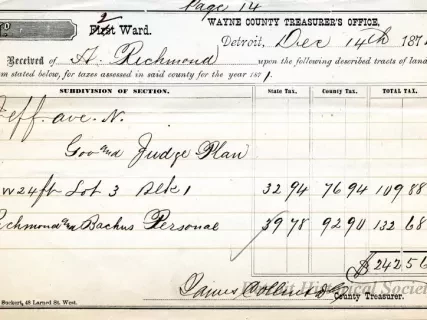 Page 14
2
First Ward. WAYNE COUNTY TREASURER'S OFFICE,
Detroit, Dec 14th 187
Received of A. Richmond upon the following described tracts of land
stated below, for taxes assessed in said county for the year 1871.
SUBDIVISION OF SECTION. STATE TAX. COUNTY TAX. TOTAL TAX.
Jeff. ave. N.
Gov and Judge Plan
W 24 ft Lot 3 Blk 1 32 94 76 94 109 88
Richmond and Backus Personal 39 78 92 90 132 68
$242 56
James Collins
County Treasurer.
49 Larned St. West.
Historical Society